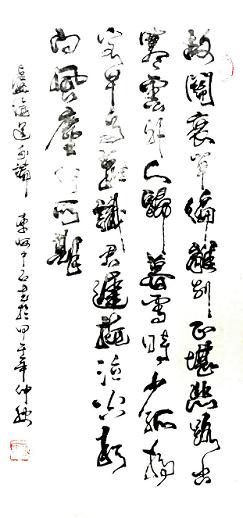 故關衰草遍離別正堪悲路出
寒雲外人歸暮雪時少孤為
客早多難識君遲掩泣空相
向風塵何所期
盧綸送李端 書於甲午年仲秋